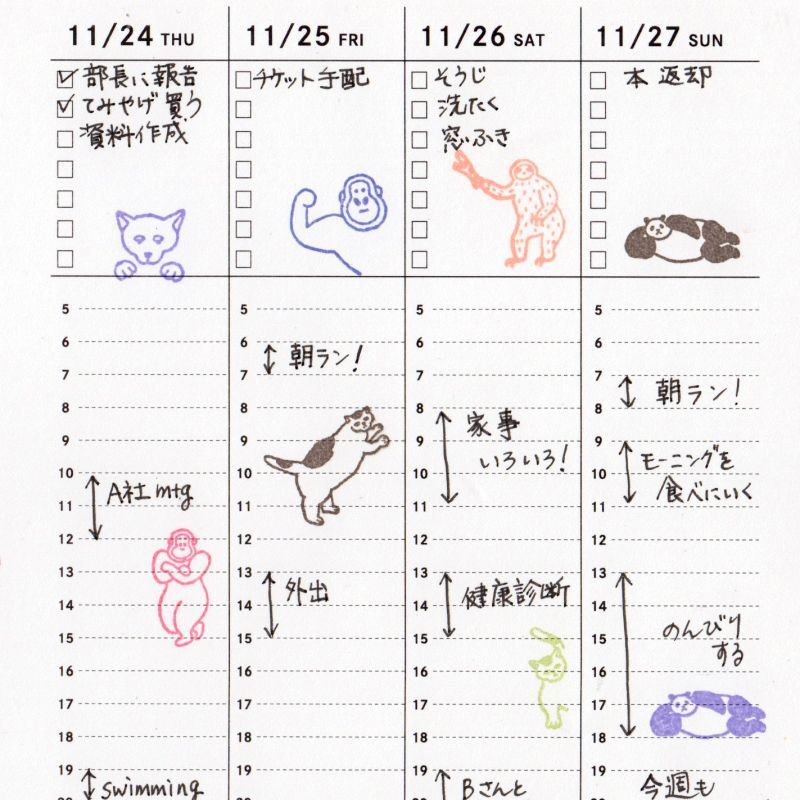 11/24 THU
部長に報告
てみやげ買う
資料作成
5
6
7
8
9
10
11
12
13
14
15
16
17
18
19
A社mtg
swimming
11/25 FRI
チケット手配
5
6
7
8
9
10
11
12
13
14
15
16
17
18
19
朝ラン!
外出
11/26 SAT
そうじ
洗たく
窓ふき
5
6
7
8
9
10
11
12
13
14
15
16
17
18
19
家事
いろいろ!
健康診断
Bさんと
11/27 SUN
本返却
5
6
7
8
9
10
11
12
13
14
15
16
17
18
19
朝ラン!
モーニングを
食べにいく
のんびり
する
今週も